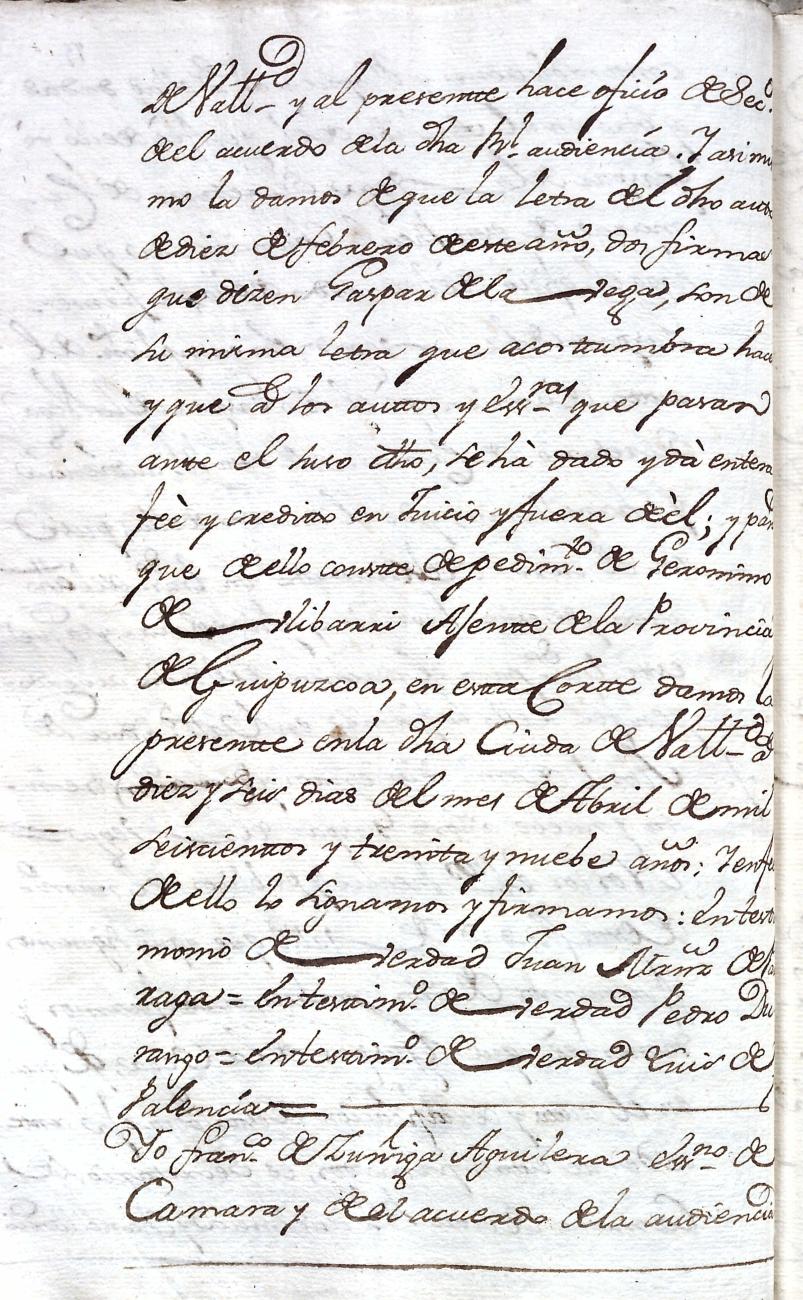 de Vall-d y al presentte hace oficio de Secº.
del acuerdo de la dha Rl. audiencia. Y asi mis
mo la damos de que la letra del dho auto
de diez de febrero de este año, dos firmas
que dizen Gaspar de la Vega, son de
su misma letra que acosttumbra hace
y que â los auttos y Essras que pasan
ante el suso dho, se hà dado y dà entera
feè y creditto en Juicio y fuera deèl; y para
que dello constte de pedimtº. de Geronimo
de Vlibarri Ajentte de la Provincia
de Guipuzcoa, en estta Cortte damos la
presentte en la dha Ciuda de Vall-d â
diez y seis dias del mes de Abril de mil
seiscienttos y treinta y nuebe años; Y en fe
de ello lo signamos y firmamos: En testi
monio de Verdad Juan de
raga = En testimº. de Verdad Pedro Du
rango = En testimº. de Verdad Luis de
Palencia =
Yo Franº. de Zuñiga Aguilera Essno. de
Camara y del acuerdo de la audiencia